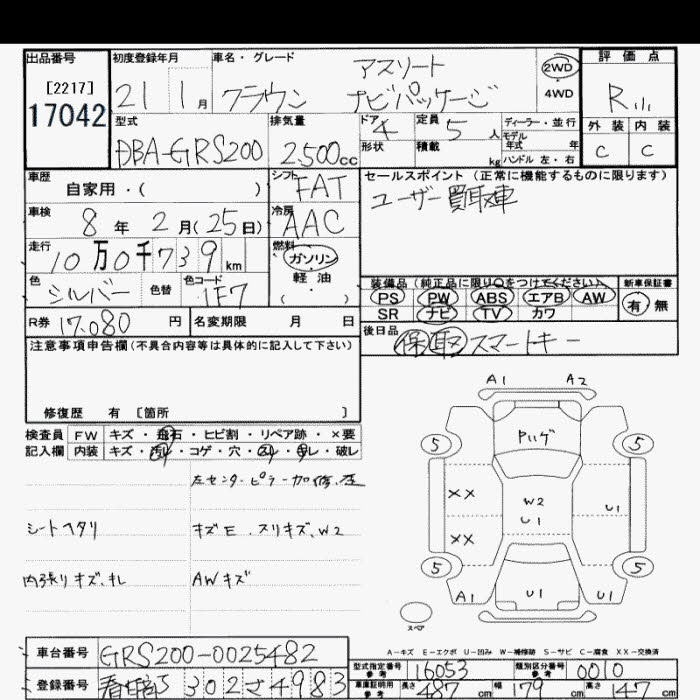 出品番号 初度登録年月 車名・グレード アスリート 2WD 評価点
[2217] 21 1月 クラウン ナビパッケージ 4WD R
17042 型式 排気量 ドア 4 定員 5人 ディーラー・並行 外装 内装
DBA-GRS200 2,500cc 形状 積載 kg モデル年式 年 ハンドル 左・右 C C
車歴 自家用・( ) シフト FAT セールスポイント(正常に機能するものに限ります)
車検 8年 2月(25日) 冷房 AAC ユーザー買取車
走行 10万0千739km 燃料 ガソリン 軽油 ( )
色 シルバー 色替 色コード 1F7 装備品(純正品に限り○をつけてください) 新車保証書
PS PW ABS エアB AW 有 無
R券 17,080円 名変期限 月 日 SR ナビ TV カワ
注意事項申告欄(不具合内容等は具体的に記入して下さい) 後日品 保 取 スマートキー
修復歴 有 [箇所 ]
A1 A2
検査員 FW キズ・飛石・ヒビ割・リペア跡・×要
記入欄 内装 キズ・汚れ・コゲ・穴・スレ・キレ・破レ
5 5
左センターピラー加修、歪
XX W2 U1 U1
シートヘタリ キズE、スリキズ、W2
XX
内張リキズ、キレ AWキズ
5 5
A1 U1 U1
スペア
A-キズ E-エクボ U-凹み W-補修跡 S-サビ C-腐食 XX-交換済
車台番号 GRS200-0025482 型式指定番号 参考 16053 類別区分番号 参考 0010
登録番号 302 さ 4983 車庫証明用 参考 長さ 487cm 幅 179cm 高さ 147cm